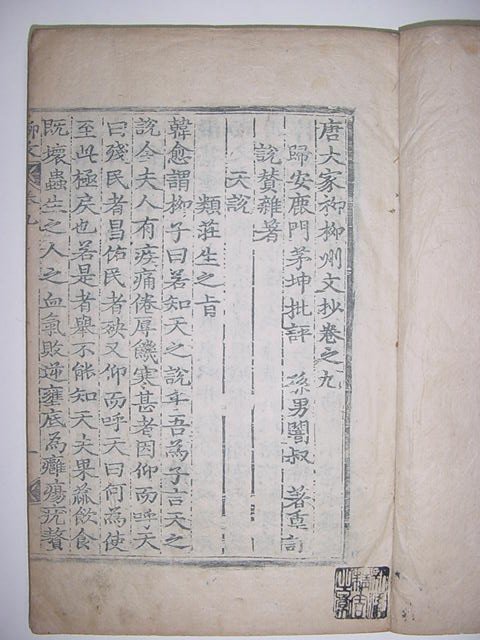 唐大家柳柳州文抄卷之九
歸安鹿門茅坤批評 孫男闇叔 著重訂
說贊雜著
天說
類莊生之旨
韓愈謂柳子曰若知天之說乎吾為子言天之
說今夫人有疾痛倦辱饑寒甚者因仰而呼天
曰殘民者昌佑民者殃又仰而呼天曰何為使
至此極戾也若是者舉不能知天夫果蓏飲食
既壞蟲生之人之血氣敗逆壅底為癰瘍疣贅
柳文 卷九 一